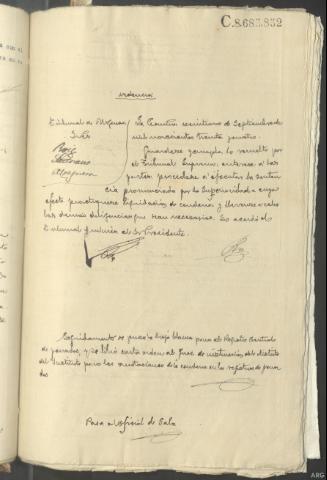 C.8.685.832
Providencia
Tribunal de Urgencia
Sres
La Coruña veintiuno de Septiembre de
mil novecientos treinta y cuatro.
Guardese y cumpla lo resuelto por
el Tribunal Supremo, enterese a las
partes, procedase a ejecutar la senten
cia pronunciada por la Superioridad a cuyo
efecto practiquese liquidación de condena y llevense a cabo
las demas diligencias que sean necesarias. Lo acordó el
Tribunal y rubrica el Sr Presidente.
Seguidamente se puso la hoja blanca para el Registro Central
de penados, y se libró carta orden al Juez de instrucción del distrito
del Instituto para las anotaciones de la condena en el registro de pena
dos
Pasa a oficial de Sala
ARG